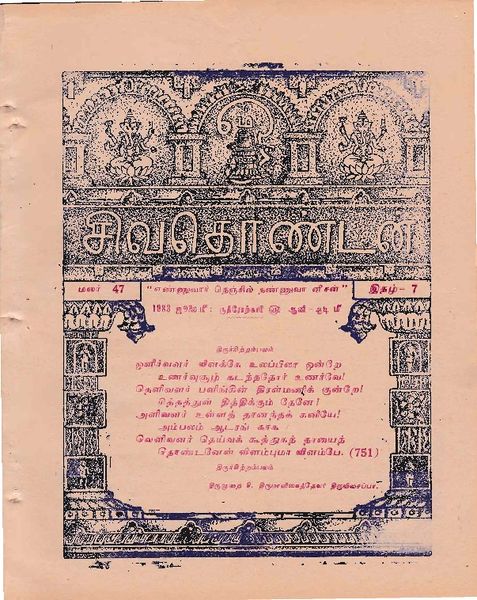 சிவதொண்டன்
மலர் 47
"எண்ணுவார் நெஞ்சில் நண்ணுவா னீசன்"
இதழ் - 7
1983 ஜூலை மீ : ருத்ரோற்காரி ௵ ஆனி - ஆடி மீ
திருச்சிற்றம்பலம்
ஒளிவளர் விளக்கே உலப்பிலா ஒன்றே
உணர்வுசூழ் கடந்ததோர் உணர்வே!
தெளிவளர் பளிங்கின் திரள்மணிக் குன்றே!
சித்தத்துள் தித்திக்கும் தேனே!
அளிவளர் உள்ளத் தானந்தக் கனியே!
அம்பலம் ஆடரங் காக
வெளிவளர் தெய்வக் கூத்துகந் தாயைத்
தொண்டனேன் விளம்புமா விளம்பே. (751)
திருச்சிற்றம்பலம்
திருமுறை 9. திருமாளிகைத்தேவர் திருவிசைப்பா.